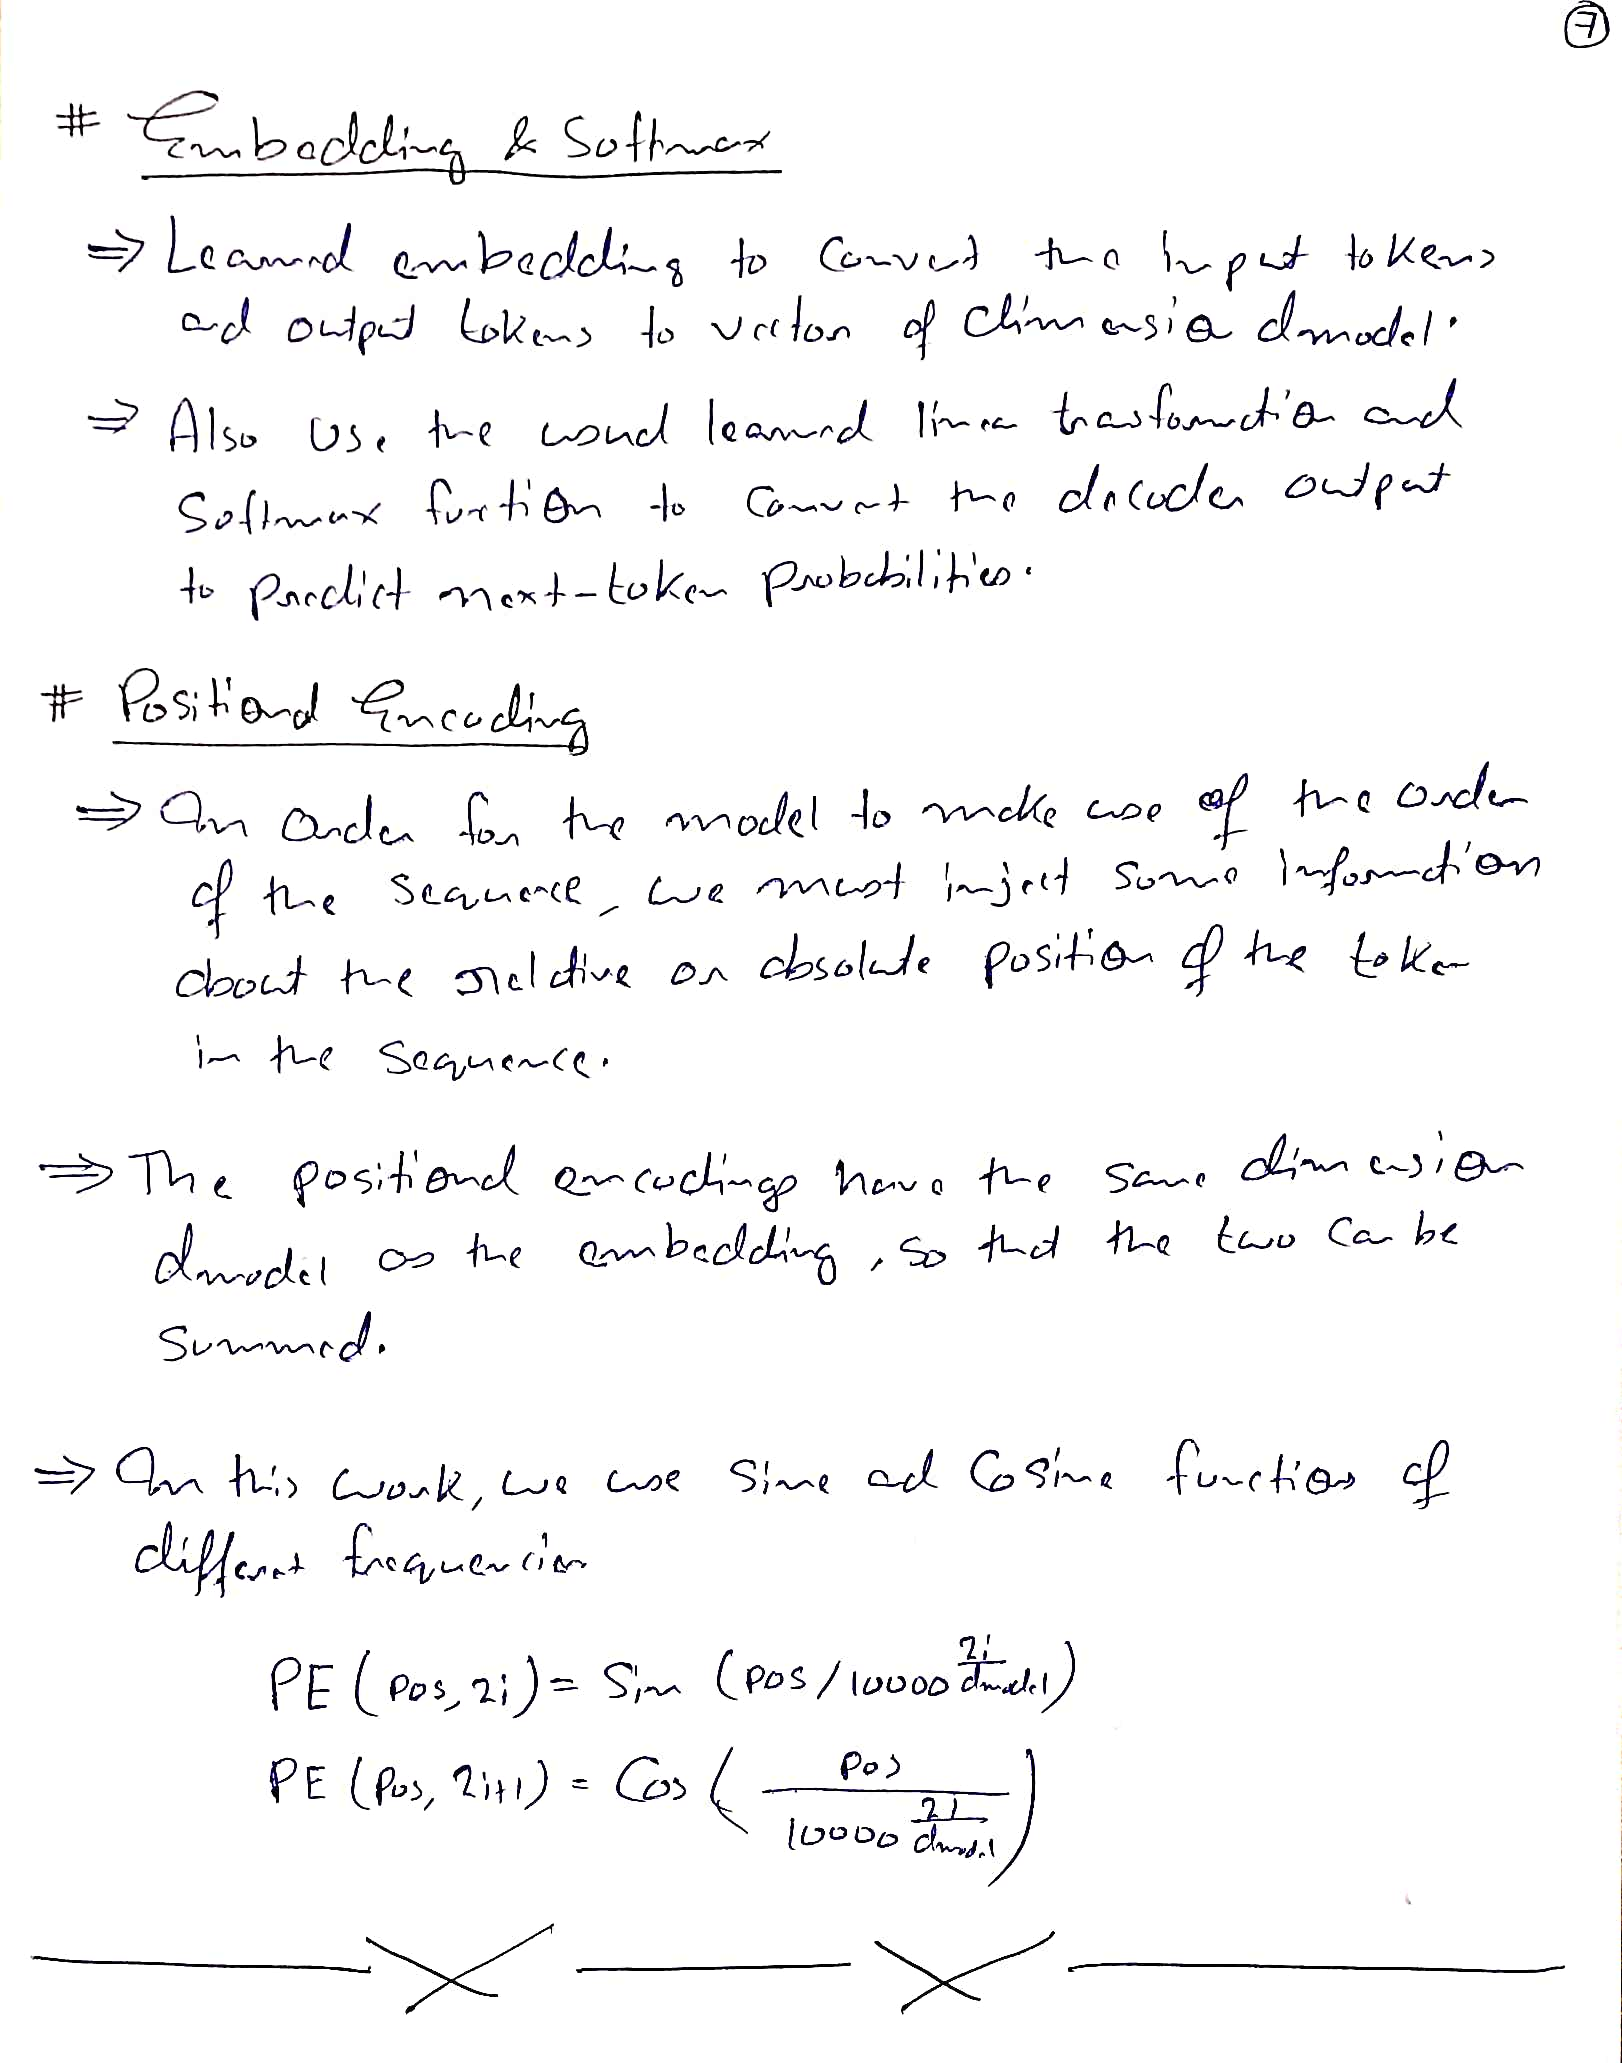 7
# Embedding & Softmax
⇒ Learned embedding to convert the input tokens
and output tokens to vector of dimension dmodel.
⇒ Also use the usual learned linear transformation and
Softmax function to convert the decoder output
to predict next-token probabilities.
# Positional Encoding
⇒ In order for the model to make use of the order
of the sequence, we must inject some information
about the relative or absolute position of the token
in the sequence.
⇒ The positional encodings have the same dimension
dmodel as the embedding, so that the two can be
summed.
⇒ In this work, we use Sine and Cosine function of
different frequencies
PE (pos, 2i) = Sin (pos / 10000^(2i/dmodel))
PE (pos, 2i+1) = Cos (pos / 10000^(2i/dmodel))